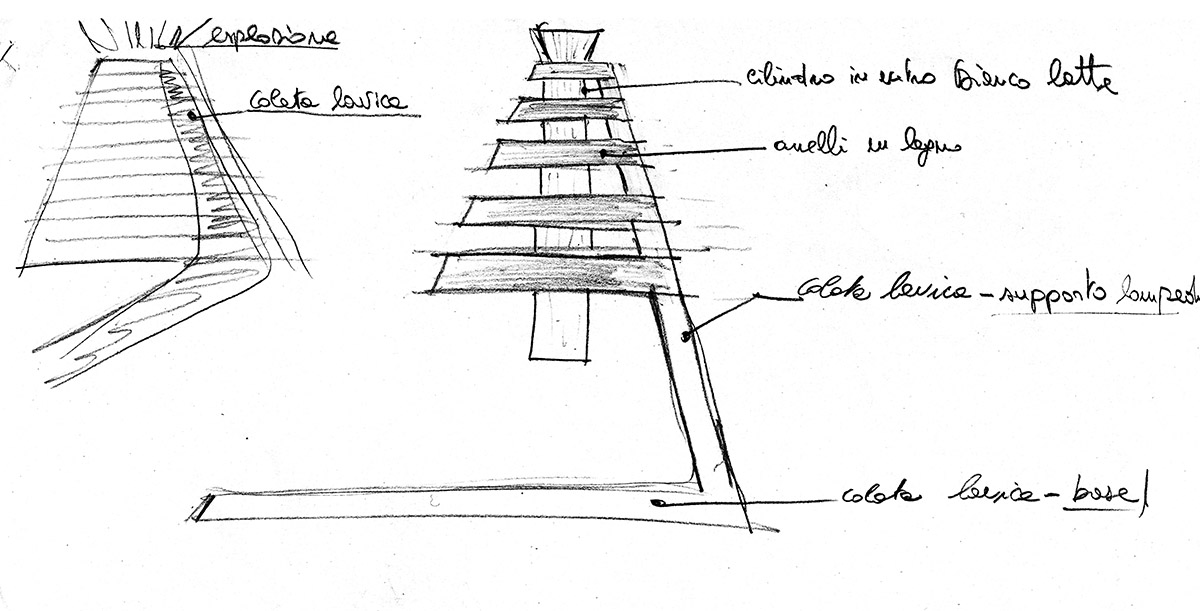 esplosione
colata lavica
cilindro in vetro bianco latte
anelli in legno
colata lavica - supporto
colata lavica - base